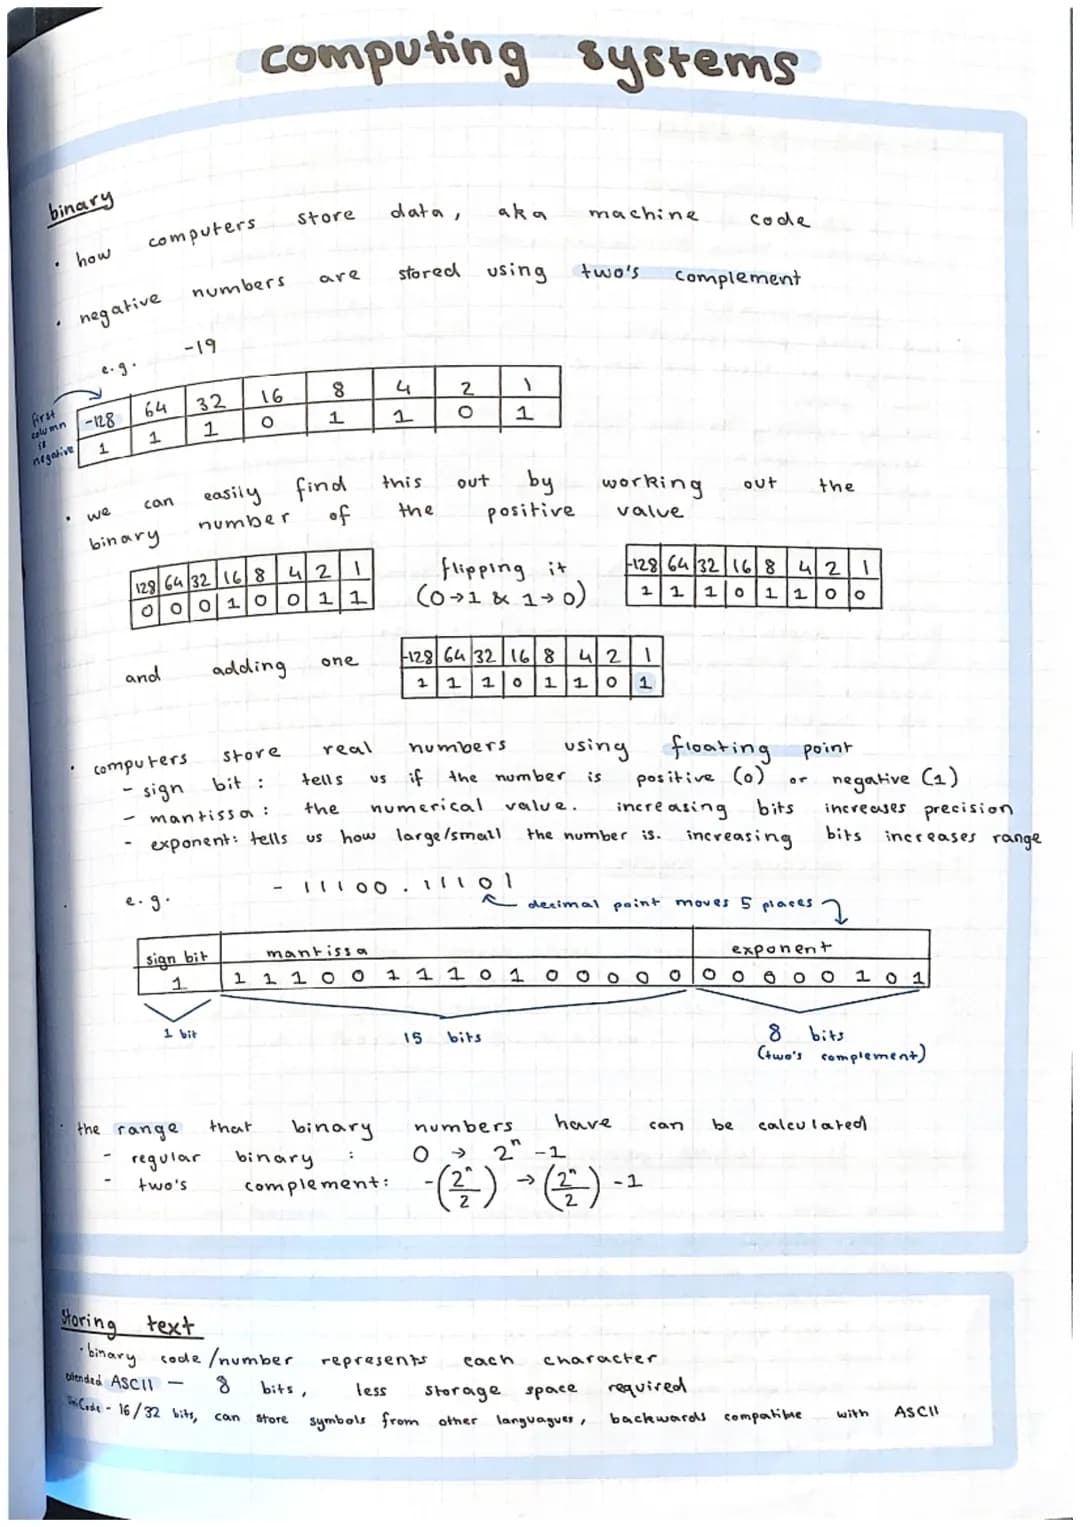 computing systems
binary
• how computers store data, aka machine code
• negative numbers are stored using two's complement
e.g. -19
first column is negative
-128 64 32 16 8 4 2 1
1 1 1 0 1 1 0 1
• we can easily find this out by working out the
binary number of the positive value
128 64 32 16 8 4 2 1
0 0 0 1 0 0 1 1
flipping it
(0→1 & 1→0)
-128 64 32 16 8 4 2 1
1 1 1 0 1 1 0 0
and adding one
-128 64 32 16 8 4 2 1
1 1 1 0 1 1 0 1
• computers store real numbers using floating point
- sign bit : tells us if the number is positive (0) or negative (1)
- mantissa : the numerical value. increasing bits increases precision
- exponent: tells us how large/small the number is. increasing bits increases range
e.g. - 11100.11101
decimal point moves 5 places
sign bit mantissa exponent
1 1 1 1 0 0 1 1 1 0 1 0 0 0 0 0 0 0 0 0 0 1 0 1
1 bit 15 bits 8 bits
(two's complement)
• the range that binary numbers have can be calculated
- regular binary : 0 → 2ⁿ -1
- two's complement: -(2ⁿ/2) → (2ⁿ/2) -1
Storing text
• binary code/number represents each character
extended ASCII – 8 bits, less storage space required
UniCode - 16/32 bits, can store symbols from other languagues, backwards compatible with ASCII